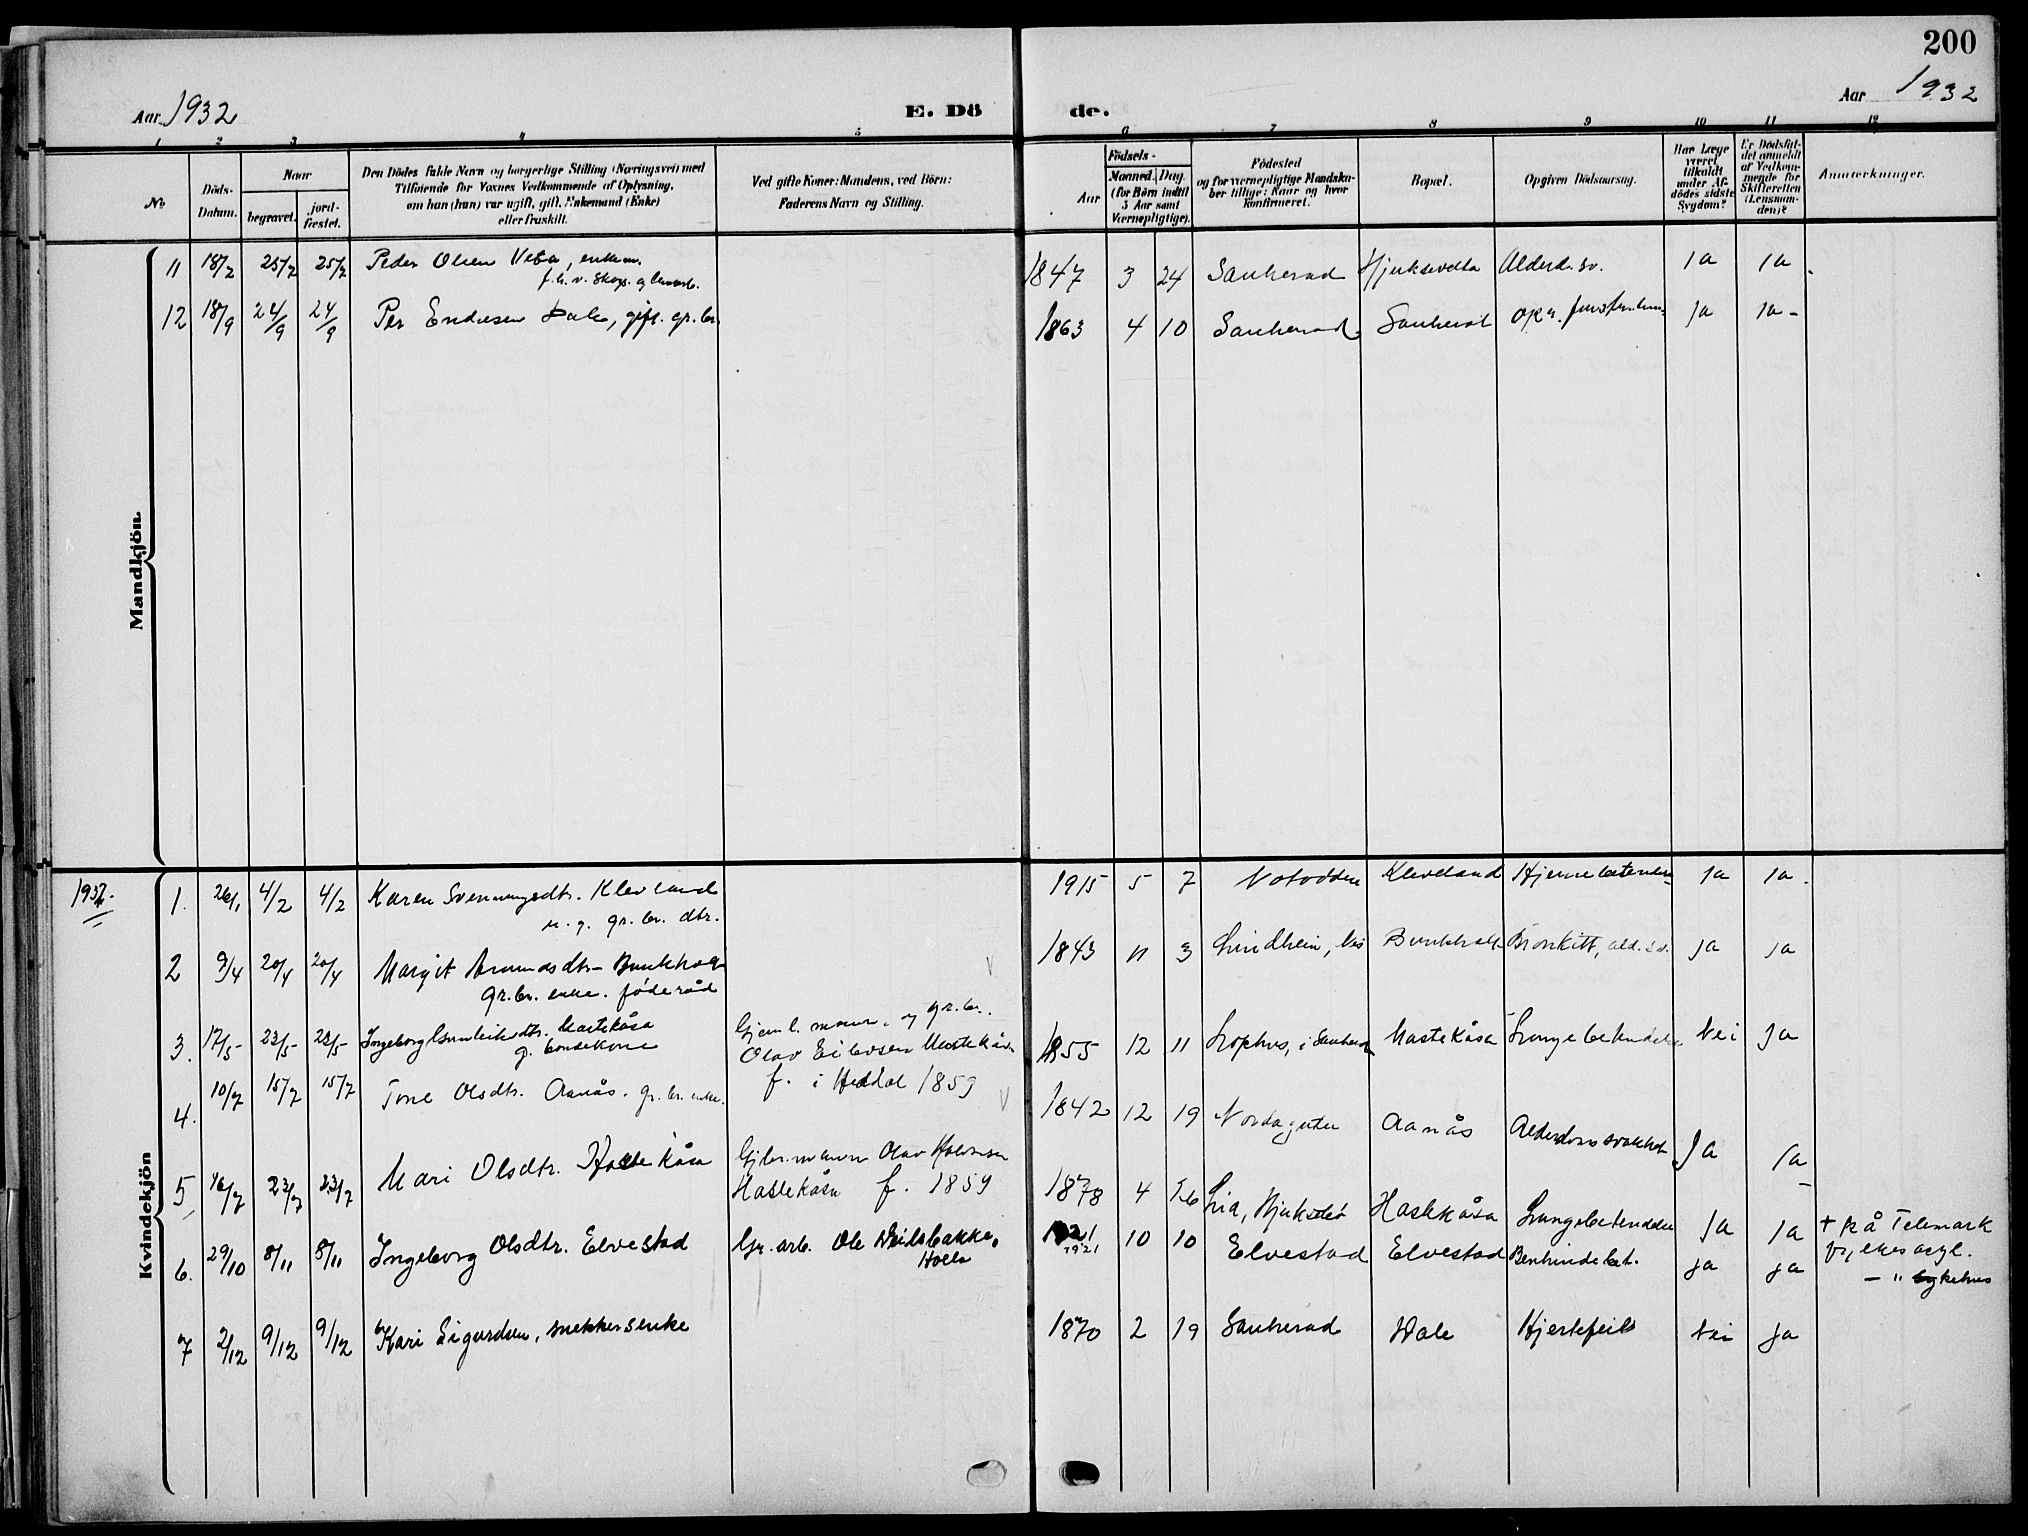 200
Aar 1932
E. Dö
de.
Aar 1932
1 2 3 4 5 6 7 8 9 10 11 12
No
Döds-
Datum.
Naar
begravet.
jord-
fæstet.
Den Dödes fulde Navn og borgerlige Stilling (Næringsvei) med
Tilföiende for Voxnes Vedkommende af Oplysning,
om han (hun) var ugift, gift, Enkemand (Enke)
eller fraskilt.
Ved gifte Koner: Mandens, ved Börn:
Faderens Navn og Stilling.
Födsels-
Aar
Maaned. Dag.
(for Börn indtil
3 Aar samt
Værnepligtige).
Födested
og for værnepligtige Mandska-
ber tillige: Naar og hvor
konfirmeret.
Bopæl.
Opgiven Dödsaarsag.
Har Læge
været
tilkaldt
under Af-
dödes sidste
Sygdom?
Er Dödsfal-
det anmeldt
af Vedkom-
mende for
Skifteretten
(Lensman-
den)?
Anmerkninger.
Mandkjön.
11 18/7 25/7 25/7 Peder Olsen Veba, enkem. 1847 3 24 Sauherad Hjuksevelta Alderd. sv. ja ja
12 18/9 24/9 24/9 Per Endresen Dale, gift. gr. br. 1863 4 10 Sauherad Sauherad ja ja
Kvindekjön
1932.
1. 26/1 4/2 4/2 Karen Svenningsdtr. Klevland 1915 5 7 Notodden Kleveland Hjernebetendelse ja ja
u. g. gr. br. dtr.
2 9/4 20/4 20/4 Margit Amundsdtr. 1843 11 3 Lindheim, Bronkitt, ald. sv. ja ja
gr. br. enke. föderåd
3. 17/5 23/5 23/5 Ingeborg Gunleiksdtr. Mastekåsa Gjem l. mann. og gr. br. 1855 12 11 Lophus, i Sauherad Mastekåsa Lungebetendelse Nei Ja
g. bondekone Olav Eilevsen Mastekåsa
f. i Heddal 1859
4. 10/7 15/7 15/7 Tone Olsdtr. Aanås. gr. br. enke. 1842 12 19 Nordagutu Aanås Alderdomssvakhet Ja ja
5 16/7 23/7 23/7 Mari Olsdtr. Haslekåsa Olav Halvorsen 1878 4 Lia, Hjuksebö Haslekåsa Lungebetendelse Ja ja + på Telemark
Haslekåsa f. 1859 fylkes asyl.
6. 29/10 8/11 8/11 Ingeborg Olsdtr. Elvestad Gr. arb. Ole 1921 10 10 Elvestad Elvestad ja ja – " sykehus
Holla
7 2/12 9/12 9/12 Kari Sigurdsen, snekkersenke 1870 2 19 Sauherad Dale Hjertefeil Nei ja